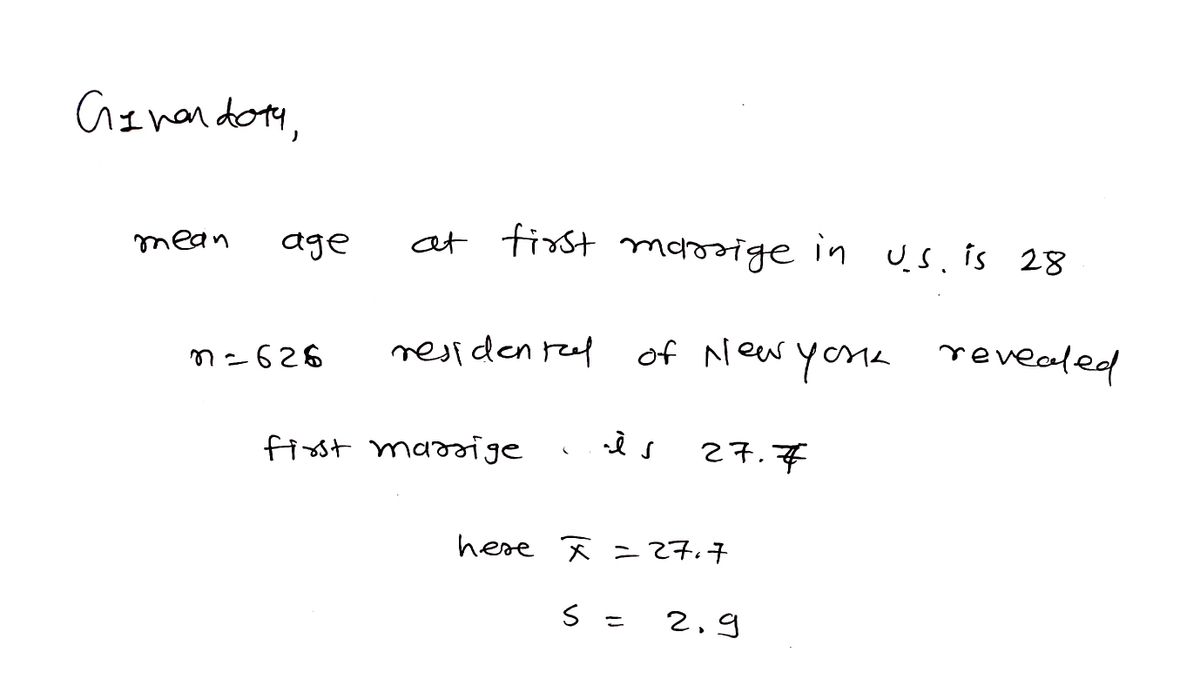 Given data,
mean age at first marrige in U.S. is 28
n=626 residental of New york revealed
first marrige is 27.7
here x̄ = 27.7
S = 2.9